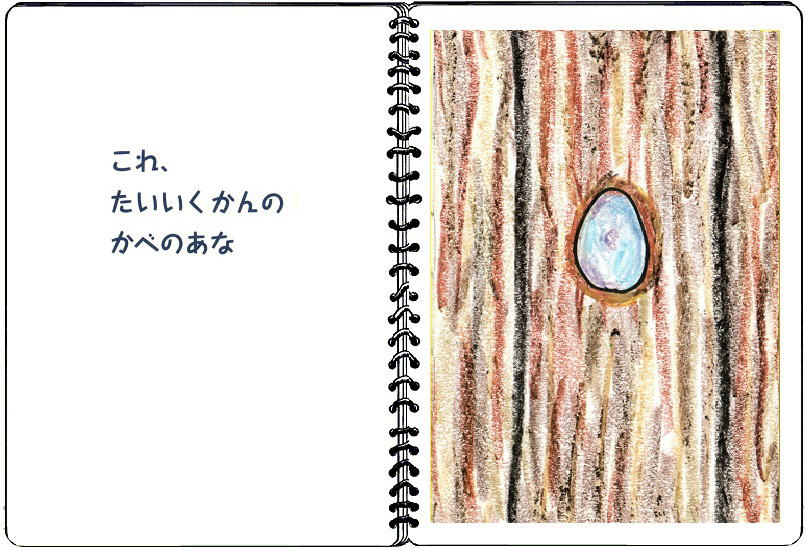 これ、
たいいくかんの
かべのあな